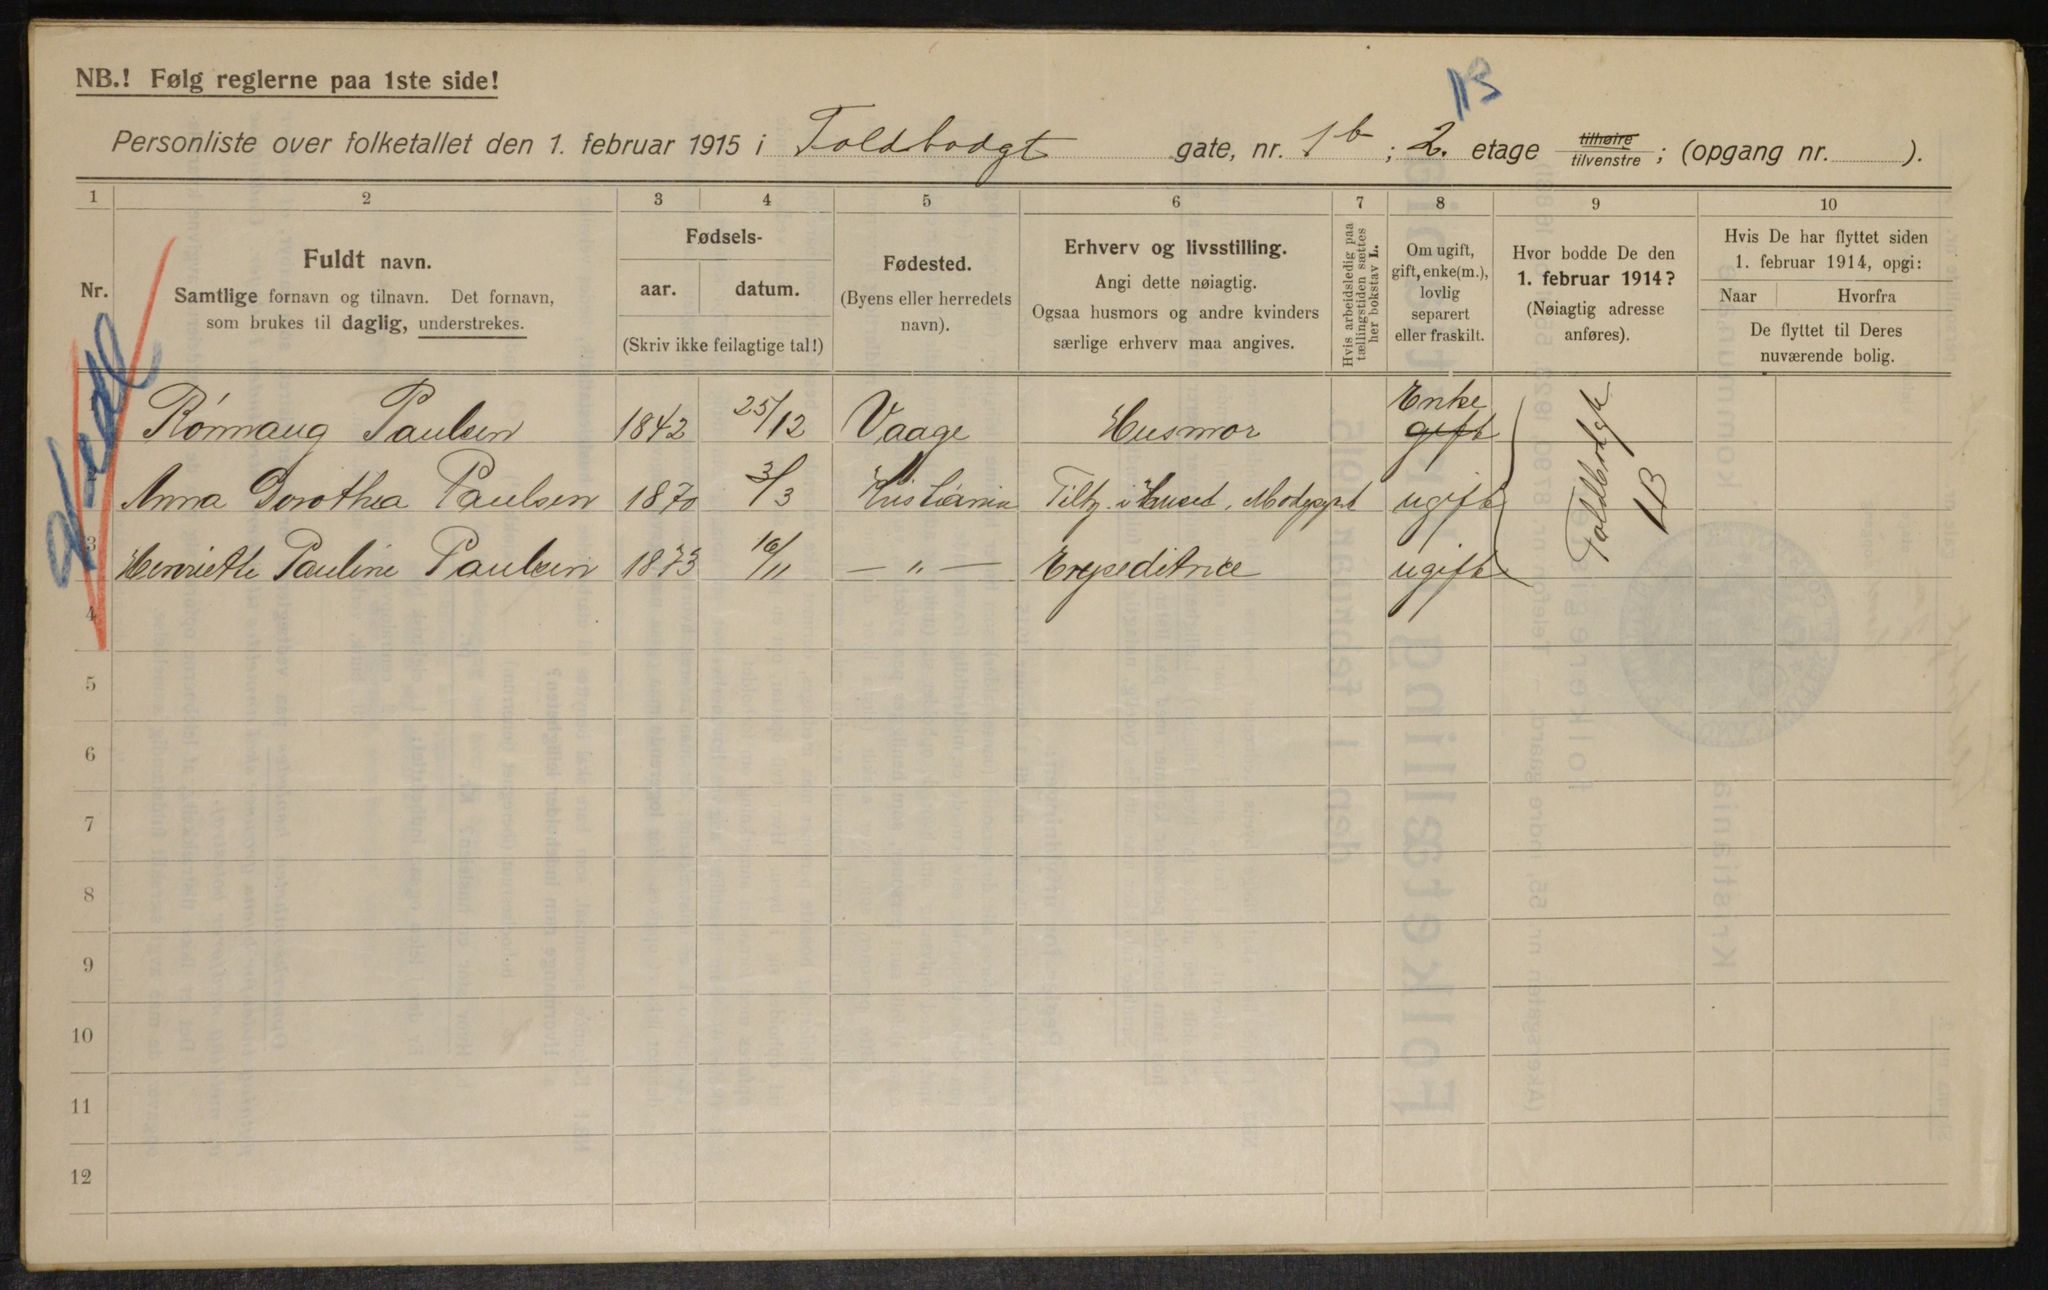 NB.! Følg reglerne paa 1ste side!
1B
Personliste over folketallet den 1. februar 1915 i Toldbodgt gate, nr. 1b ; 2. etage tilhøire tilvenstre ; (opgang nr. ).
1 2 3 4 5 6 7 8 9 10
Nr.
Fuldt navn.
Samtlige fornavn og tilnavn. Det fornavn,
som brukes til daglig, understrekes.
Fødsels-
aar. datum.
(Skriv ikke feilagtige tal!)
Fødested.
(Byens eller herredets
navn).
Erhverv og livsstilling.
Angi dette nøiagtig.
Ogsaa husmors og andre kvinders
særlige erhverv maa angives.
Hvis arbeidsledig paa
tællingstiden sættes
her bokstav L.
Om ugift,
gift, enke(m.),
lovlig
separert
eller fraskilt.
Hvor bodde De den
1. februar 1914?
(Nøiagtig adresse
anføres).
Hvis De har flyttet siden
1. februar 1914, opgi:
Naar Hvorfra
De flyttet til Deres
nuværende bolig.
Rønnaug Paulsen 1842 25/12 Vaage Husmor Enke gift
Anna Dorothea Paulsen 1870 3/3 Kristiania ugift
3 Henriette Pauline Paulsen 1873 16/11 — " — Expeditrice ugift
Toldbodgt
1B
4
5
6
7
8
9
10
11
12